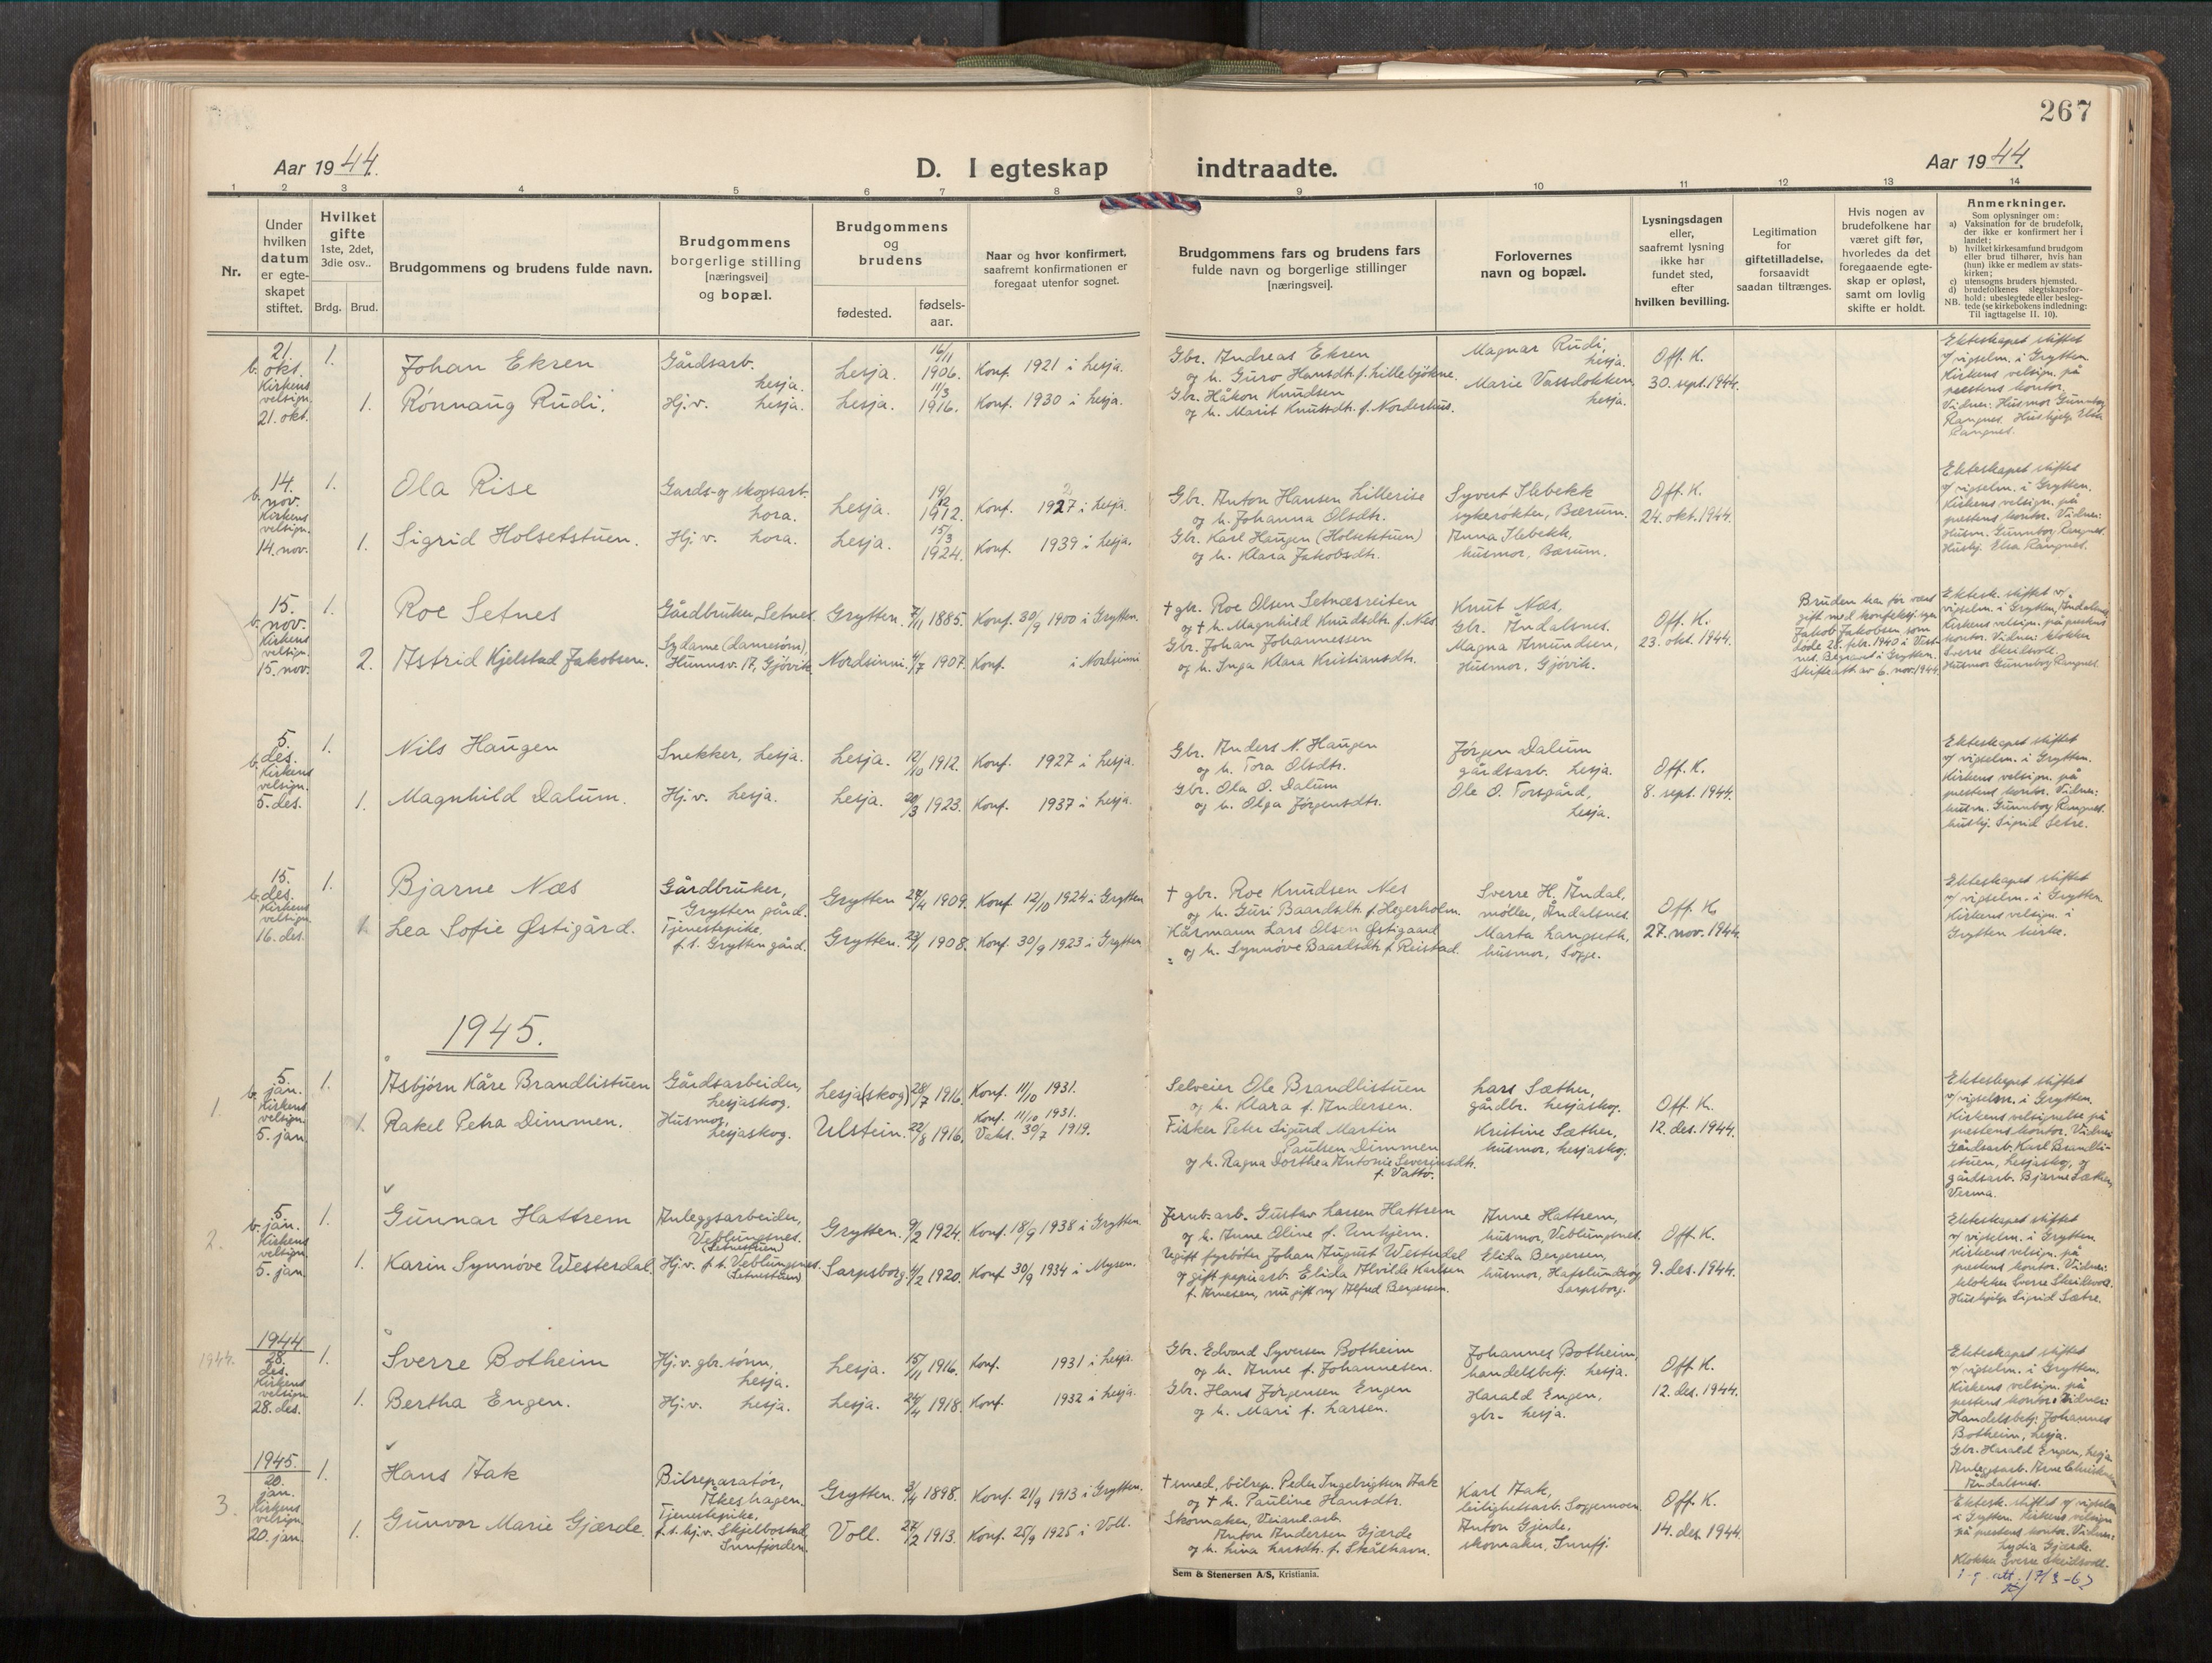 267
Aar 1944.
D. I egteskap indtraadte.
Aar 1944.
1 2 3 4 5 6 7 8 9 10 11 12 13 14
Nr.
Under hvilken datum er egteskapet stiftet.
Hvilket gifte
1ste, 2det, 3die osv..
Brdg. Brud.
Brudgommens og brudens fulde navn.
Brudgommens borgerlige stilling [næringsvei] og bopæl.
Brudgommens og brudens
fødested.
fødsels-aar.
Naar og hvor konfirmert, saafremt konfirmationen er foregaat utenfor sognet.
Brudgommens fars og brudens fars fulde navn og borgerlige stillinger [næringsvei].
Forlovernes navn og bopæl.
Lysningsdagen eller, saafremt lysning ikke har fundet sted, efter hvilken bevilling.
Legitimation for giftetilladelse, forsaavidt saadan tiltrænges.
Hvis nogen av brudefolkene har været gift før, hvorledes da det foregaaende egteskap er opløst, samt om lovlig skifte er holdt.
Anmerkninger.
Som oplysninger om:
a) Vaksination for de brudefolk, der ikke er konfirmert her i landet;
b) hvilket kirkesamfund brudgom eller brud tilhører, hvis han (hun) ikke er medlem av statskirken;
c) utensogns bruders hjemsted.
d) brudefolkenes slegtskapsforhold: ubeslegtede eller beslegtede (se kirkebokens indledning: Til iagttagelse II. 10).
NB.
b. 21. okt. Kirkens velsign. 21. okt.
1. Johan Ekren
Gårdsarb. Lesja.
Lesja. 16/11 1906. Konf. 1921 i Lesja.
Gbr. Andreas Ekren
og h. Guro Hansdtr. f. Lillebjökne.
Magnar Rudi, Lesja.
Off. K.
30. sept. 1944.
1. Rønnaug Rudi.
Hj.v. Lesja.
Lesja. 11/3 1916. Konf. 1930 i Lesja.
Gbr. Håkon Knudsen
og h. Marit Knutsdtr. f. Norderhus.
Marie Vassdokken, Lesja.
Ekteskapet stiftet
v/ vigselm. i Grytten
Kirkens velsign. på
prestens kontor.
Vidner: Husmor Gunnbor
Rangnes. Hushjelp Elsa
Rangnes.
b. 14. nov. Kirkens velsign. 14. nov.
1. Ola Rise
Gards- og skogsarb. Lora.
Lesja. 19/12 1912. Konf. 1927 i Lesja.
Gbr. Anton Hansen Lillerise
og h. Johanna Olsdtr.
Syvert Ilebekk
sykerøkter, Bærum.
Off. K.
24. okt. 1944.
1. Sigrid Holsetstuen.
Hj.v. Lora.
Lesja. 15/3 1924. Konf. 1939 i Lesja.
Gbr. Karl Haugen (Holsetstuen)
og h. Klara Jakobsdtr.
Anna Ilebekk,
husmor, Bærum.
Ekteskapet stiftet
v/ vigselm. i Grytten.
Kirkens velsign. på
prestens kontor. Vidner:
Husm. Gunnborg Rangnes.
Hushj. Elsa Rangnes.
b. 15. nov. Kirkens velsign. 15. nov.
1. Roe Setnes
Gårdbruker, Setnes.
Grytten. 7/11 1885. Konf. 30/9 1900 i Grytten.
† gbr. Roe Olsen Setnæsreiten
og † h. Magnhild Knudsdtr. f. Nes
Knut Næs,
Gbr. Åndalsnes.
Off. K.
23. okt. 1944.
2. Astrid Kjelstad Jakobsen.
Sydame (damesøm), Hunnsv. 17, Gjövik.
Nordsinni. 4/7 1907. Konf. i Nordsinni
Gbr. Johan Johannessen
og h. Inga Klara Kristiansdtr.
Magna Amundsen,
Husmor, Gjövik.
Bruden har før vært
gift med konfeksj.
Jakob Jakobsen som
døde 28. febr. 1940 i Vest-
nes. Begravet i Grytten.
Skifteatt. av 6. nov. 1944.
Ektesk. stiftet v/
vigselm. i Grytten, Åndalsnes
Kirkens velsign. på prestens
kontor. Vidner: klokker
Sverre Skeidsvoll.
Husmor Gunnborg Rangnes.
b. 5. des. Kirkens velsign. 5. des.
1. Nils Haugen
Snekker, Lesja.
Lesja. 12/10 1912. Konf. 1927 i Lesja.
Gbr. Anders N. Haugen
og h. Tora Olsdtr.
Jörgen Dalum
gårdsarb. Lesja.
Off. K.
8. sept. 1944.
1. Magnhild Dalum.
Hj.v. Lesja.
Lesja. 20/3 1923. Konf. 1937 i Lesja.
Gbr. Ola O. Dalum
og h. Olga Jörgensdtr.
Ole O. Torsgård,
Lesja.
Ekteskapet stiftet
v/ vigselm. i Grytten.
Kirkens velsign. på
prestens kontor. Vidner:
husm. Gunnborg Rangnes.
hushj. Sigrid Setre.
b. 15. des. Kirkens velsign. 16. des.
1. Bjarne Næs
Gårdbruker, Grytten gård.
Grytten 27/4 1909. Konf. 12/10 1924 i Grytten
† gbr. Roe Knudsen Nes
og h. Guri Baardsdtr. f. Hegerholm.
Sverre H. Åndal,
møller, Åndalsnes.
Off. K.
27. nov. 1944.
1. Lea Sofie Østigård.
Tjenestepike, f.t. Grytten gård.
Grytten. 23/1 1908. Konf. 30/9 1923 i Grytten
Kårmann Lars Olsen Østigaard
og h. Synnøve Baardsdtr. f. Reistad.
Marta Langseth,
husmor, Sogge.
Ekteskapet stiftet
v/ vigselm. i Grytten.
Kirkens velsign. i
Grytten kirke.
1945.
1. b. 5. jan. Kirkens velsign. 5. jan.
1. Asbjørn Kåre Brandlistuen
Gårdsarbeider, Lesjaskog.
Lesja(skog) 28/7 1916. Konf. 11/10 1931.
Selveier Ole Brandlistuen
og h. Klara f. Andersen.
Lars Sæther,
gårdbr. Lesjaskog.
Off. K.
12. des. 1944.
1. Rakel Petra Dimmen.
Husmor, Lesjaskog.
Ulstein. 22/8 1916. Konf. 11/10 1931. Vaks. 30/7 1919.
Fisker Peter Sigurd Martin
Paulsen Dimmen
og h. Ragna Dorthea Antonie Severinsdtr.
f. Vattø.
Kristine Sæther,
husmor, Lesjaskog.
Ekteskapet stiftet
v/ vigselm. i Grytten.
Kirkens velsignelse på
prestens kontor. Vidner
Gårdsarb. Karl Brandli-
stuen, Lesjaskog, og
gårdsarb. Bjarne Sæther,
Verma.
2. b. 5. jan. Kirkens velsign. 5. jan.
1. Gunnar Hattrem
Anleggsarbeider, Veblungsnes. (Setnestuen)
Grytten. 9/2 1924. Konf. 18/9 1938 i Grytten.
Jernb.arb. Gustav Larsen Hattrem
og h. Anne Oline f. Unhjem.
Anne Hattrem,
husmor, Veblungsnes.
Off. K.
9. des. 1944.
1. Karin Synnöve Westerdal.
Hj.v. f.t. Veblungsnes. (Setnestuen)
Sarpsborg. 4/2 1920. Konf. 30/9 1934 i Mysen.
Ugift fyrbøter Johan August Westerdal
og gift papirarb. Elida Alvilde Karlsen
f. Arnesen, nu gift m/ Alfred Bergersen.
Elida Bergersen,
husmor, Hafslundsog
Sarpsborg.
Ekteskapet stiftet
v/ vigselm. i Grytten.
Kirkens velsign. på
prestens kontor. Vidner:
klokker Sverre Skeidsvoll.
Hushjelp Sigrid Sætre.
1944. 1944 28. des. Kirkens velsign. 28. des.
1. Sverre Botheim
Hj.v. gbr.sönn, Lesja.
Lesja. 15/11 1916. Konf. 1931 i Lesja.
Gbr. Edvard Syversen Botheim
og h. Anne f. Johannesen.
Johannes Botheim,
handelsbetj. Lesja.
Off. K.
12. des. 1944.
1. Bertha Engen.
Hj.v. Lesja.
Lesja. 24/4 1918. Konf. 1932 i Lesja.
Gbr. Hans Jørgensen Engen
og h. Mari f. Larsen.
Harald Engen,
gbr. Lesja.
Ekteskapet stiftet
v/ vigselm. i Grytten.
Kirkens velsign. på
prestens kontor. Vidner:
Handelsbetj. Johannes
Botheim, Lesja.
Gbr. Harald Engen, Lesja
Anleggsarb. Arne
Åndalsnes.
3. 1945. 20. jan. Kirkens velsign. 20. jan.
1. Hans Aak
Bilreparatör, Åkeshagen.
Grytten. 3/4 1898. Konf. 21/9 1913 i Grytten.
† smed, bilrep. Peder Ingebrigtsen Aak
og † h. Pauline Hansdtr.
Karl Aak,
leilighetsarb. Soggemoen
Off. K.
14. des. 1944
1. Gunvor Marie Gjærde.
Tjenestepike, f.t. hj.v. Skjelbostad, Innfjorden.
Voll. 27/2 1913. Konf. 25/9 1925 i Voll.
Skomaker, Veianl.arb.
Anton Andersen Gjærde
og h. Lina Larsdtr. f. Skålhavn.
Anton Gjerde,
skomaker, Innfj.
Ektesk. stiftet v/ vigselm
i Grytten. Kirkens velsign
på prestens kontor. Vidner:
Lydia Gjærde.
Klokker Sverre Skeidsvoll.
Sem & Stenersen A/S, Kristiania.